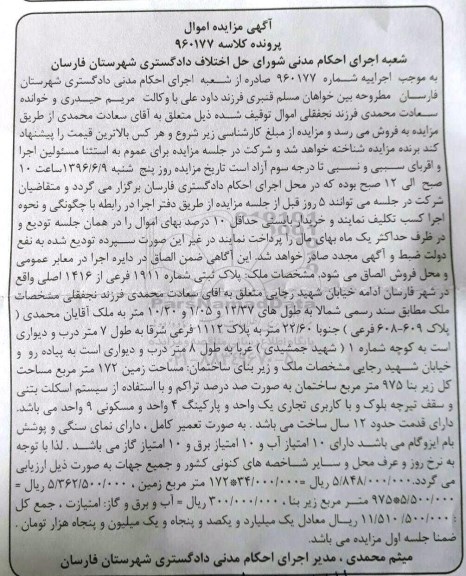 آگهی مزایده اموال
پرونده کلاسه ۹۶۰۱۷۷
شعبه اجرای احکام مدنی شورای حل اختلاف دادگستری شهرستان فارسان
به موجب اجراییه شماره ۹۶۰۱۷۷ صادره از شعبه اجرای احکام مدنی دادگستری شهرستان
فارسان مطروحه بین خواهان مسلم قنبری فرزند داود علی با وکالت مریم حیدری و خوانده
سعادت محمدی فرزند نجفقلی اموال توقیف شده ذیل متعلق به آقای سعادت محمدی از طریق
مزایده به فروش می رسد و مزایده از مبلغ کارشناسی زیر شروع و هر کس بالاترین قیمت را پیشنهاد
کند برنده مزایده شناخته خواهد شد و شرکت در جلسه مزایده برای عموم به استثنا مسئولین اجرا
و اقربای سببی و نسبی تا درجه سوم آزاد است تاریخ مزایده روز پنج شنبه ۱۳۹۶/۶/۹ساعت ۱۰
صبح الی ۱۲ صبح بوده که در محل اجرای احکام دادگستری فارسان برگزار می گردد و متقاضیان
شرکت در جلسه می توانند ۵ روز قبل از جلسه مزایده از طریق دفتر اجرا در رابطه با چگونگی و نحوه
اجرا کسب تکلیف نمایند و خریدار بایستی حداقل ۱۰ درصد بهای اموال را در همان جلسه تودیع و
در ظرف حداکثر یک ماه بهای مال را پرداخت نمایند در غیر این صورت سپرده تودیع شده به نفع
دولت ضبط و آگهی مجدد صادر خواهد شد. این آگاهی ضمن الصاق در دایره اجرا در معابر عمومی
و محل فروش الصاق می شود. مشخصات ملک: پلاک ثبتی شماره ۱۹۱۱ فرعی از ۱۴۱۶ اصلی واقع
در شهر فارسان ادامه خیابان شهید رجایی متعلق به آقای سعادت محمدی فرزند نجفقلی مشخصات
ملک مطابق سند رسمی شمالا به طول های ۱۲/۳۷ و ۱/۰۵ و ۱۰/۳۰ متر به ملک آقایان محمدی (
پلاک ۶۰۹-۶۰۸ فرعی ) جنوبا ۲۲/۶۰ متر به پلاک ۱۱۱۲ فرعی شرقا به طول ۷ متر درب و دیواری
است به کوچه شماره ۱ ( شهید جمشیدی ) غربا به طول ۸ متر درب و دیواری است به پیاده رو و
خیابان شهید رجایی مشخصات ملک و زیر بنای ساختمان: مساحت زمین ۱۷۲ متر مربع مساحت
کل زیر بنا ۹۷۵ متر مربع ساختمان به صورت صد درصد تراکم و با استفاده از سیستم اسکلت بتنی
و سقف تیرچه بلوک و با کاربری تجاری یک واحد و پارکینگ ۴ واحد و مسکونی ۹ واحد می باشد.
دارای قدمت حدود ۱۲ سال ساخت می باشد . به صورت تعمیر کامل ، دارای نمای سنگی و پوشش
بام ایزوگام می باشد دارای ۱۰ امتیاز آب و ۱۰ امتیاز برق و ۱۰ امتیاز گاز می باشد . لذا با توجه
به نرخ روز و عرف محل و سایر شاخصه های کنونی کشور و جمیع جهات به صورت ذیل ارزیابی
می گردد.۵/۸۴۸/۰۰۰/۰۰۰ ریال =۳۴/۰۰۰/۰۰۰*۱۷۲ متر مربع زمین ، ۵/۳۶۲/۵۰۰/۰۰۰ ریال =
۵/۵۰۰/۰۰۰*۹۷۵ متر مربع زیر بنا ، ۳۰۰/۰۰۰/۰۰۰ ریال = آب و برق و گاز: امتیازت ، جمع کل
: ۱۱/۵۱۰/۵۰۰/۰۰۰ ریال معادل یک میلیارد و یکصد و پنجاه و یک میلیون و پنجاه هزار تومان .
ضمنا جلسه اول مزایده می باشد.
میثم محمدی ، مدیر اجرای احکام مدنی دادگستری شهرستان فارسان